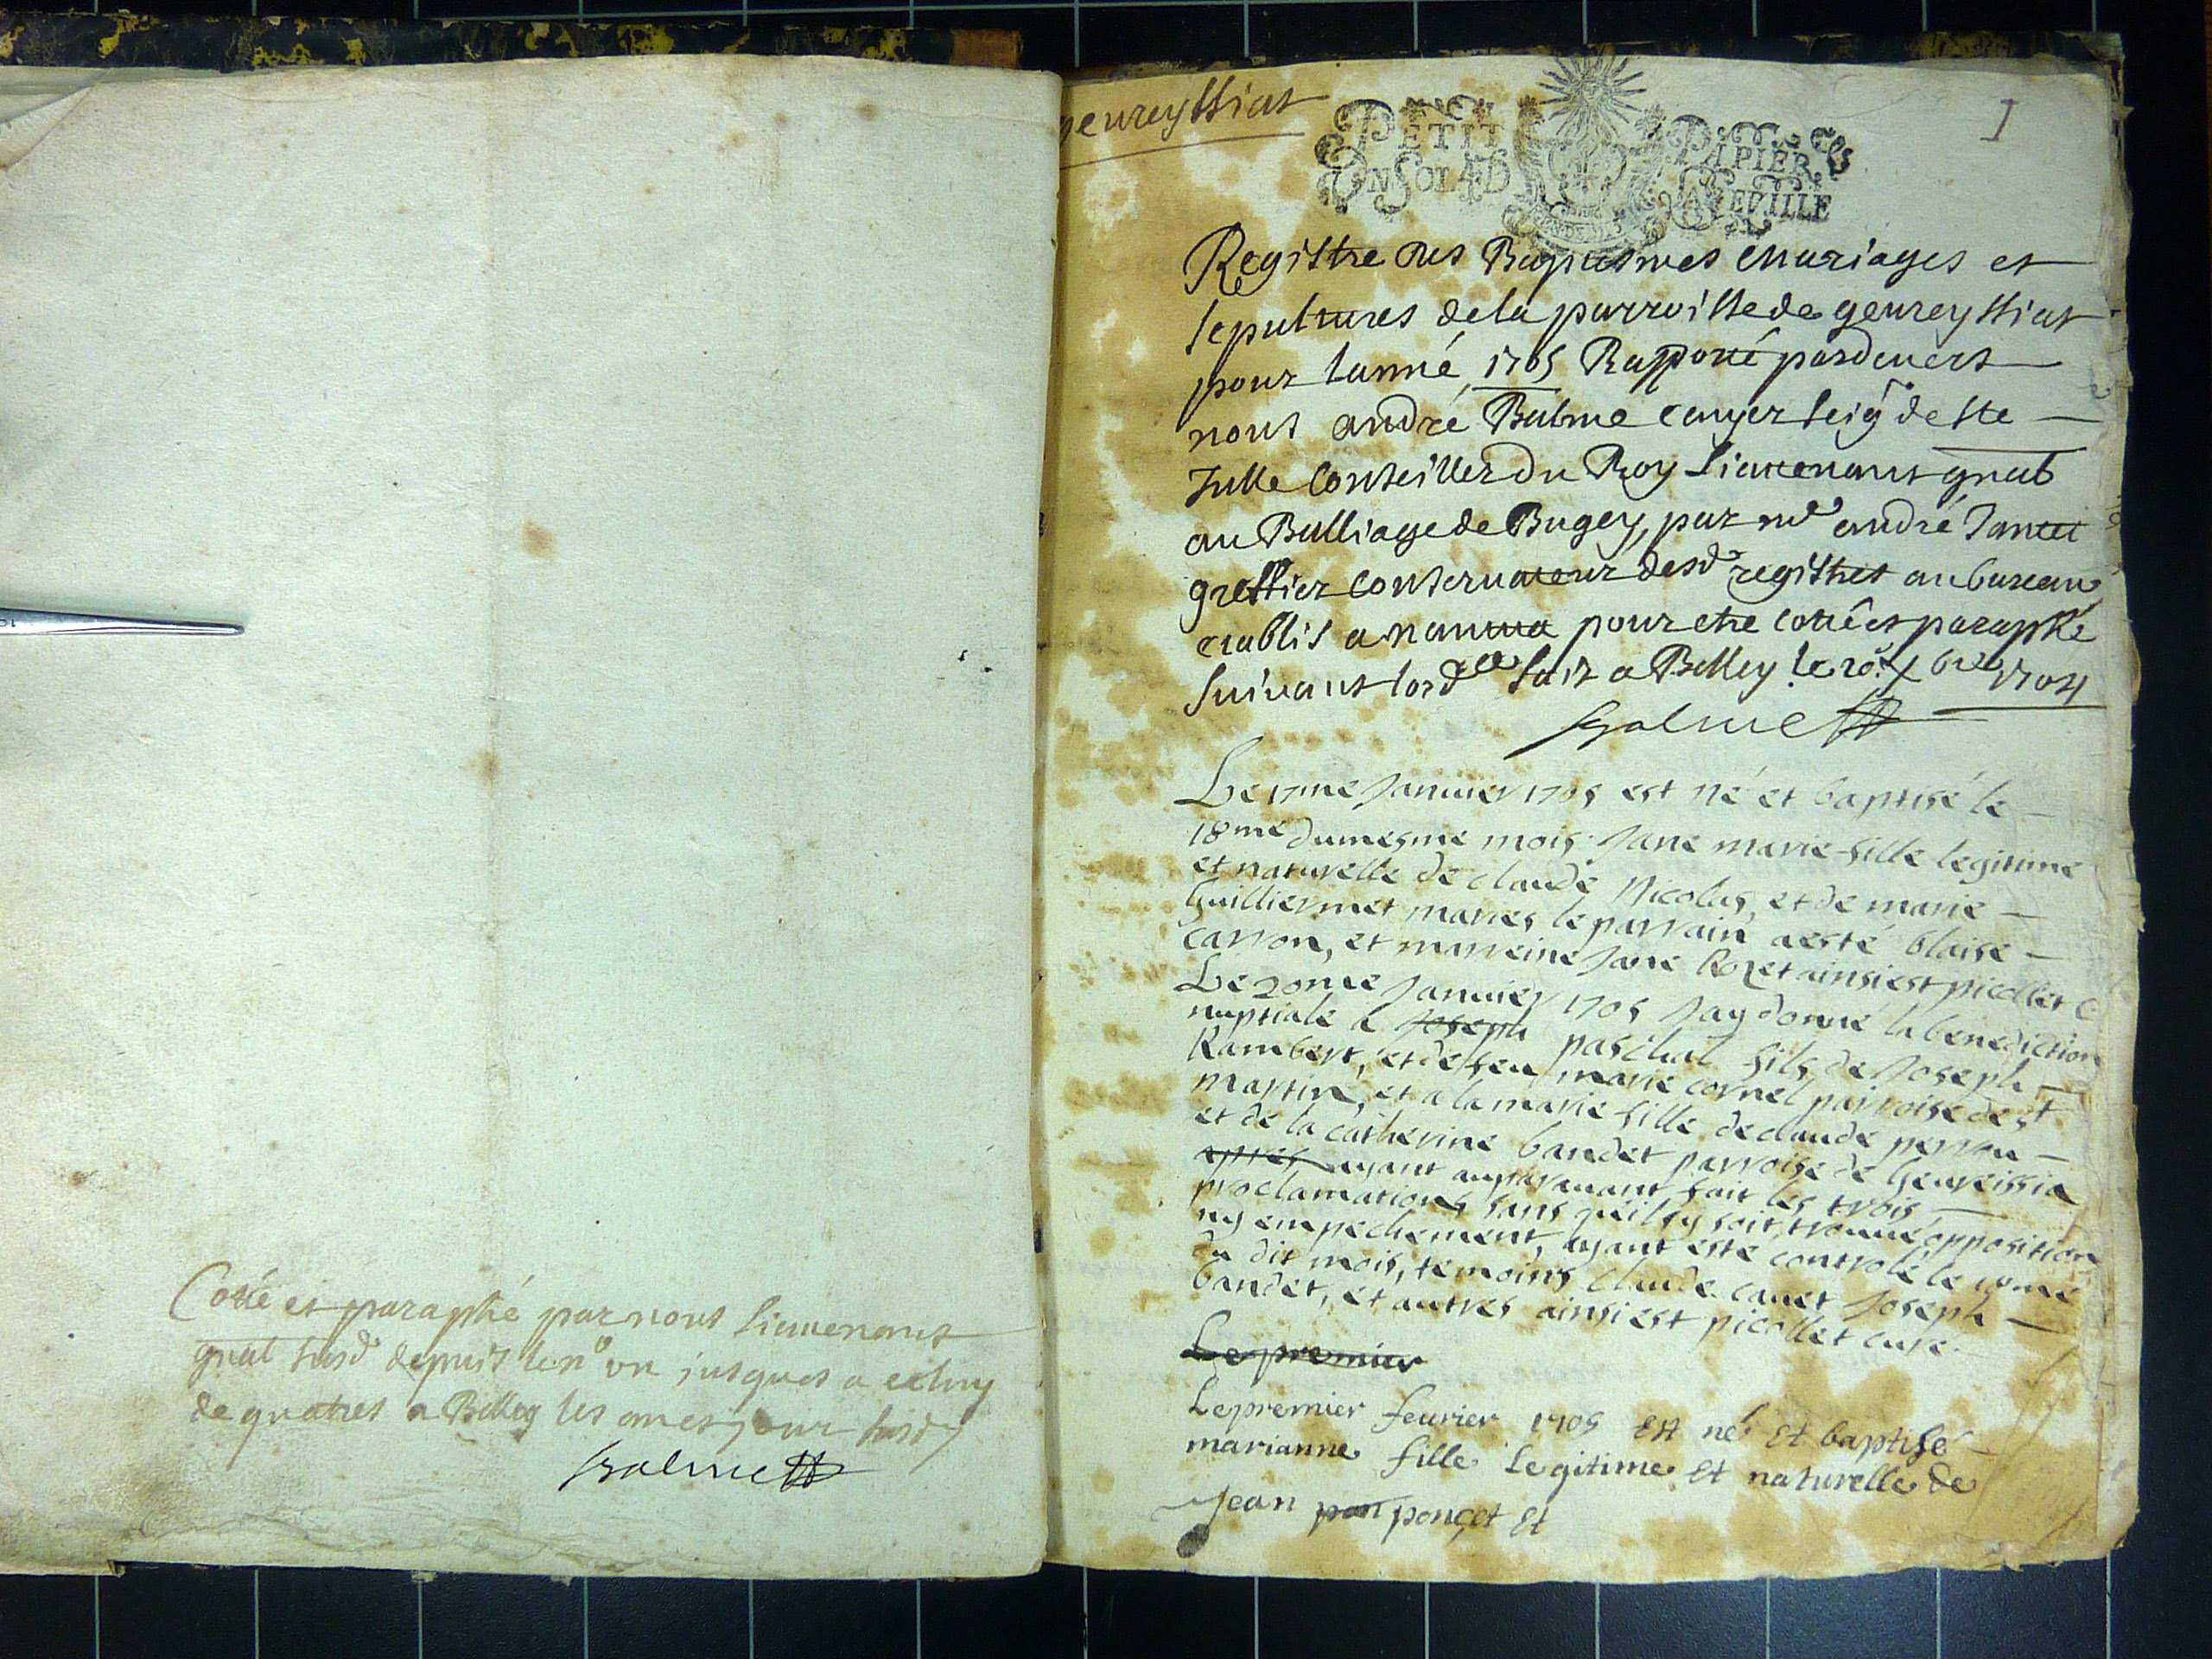 Cotté et paraphé par nous lieutenant
gnal susd depuis le no un jusques a celuy
de quatres a Belley les an et jour susd
Balme
geureyssiat
1
PETIT PAPIER
UN SOL 4 D LA FEUILLE
Registre des Baptesmes Mariages et
sepultures de la parroisse de geureyssiat
pour lanné 1705 Rapporté pardevers
nous andré Balme ecuyer seigr de ste
Julle Conseiller du Roy Lieutenant gnal
au Balliage de Bugey, par me andré Jantet
greffier conservateur desd registres au bureau
etablis a nantua pour etre cotté et paraphé
suivant lordce fait a Belley le 20e xbre 1704
Balme
Le 17me Janvier 1705 est né et baptisé le
18me du mesme mois Jane marie fille legitime
et naturelle de claude Nicolas, et de marie
Guilliermet mariés le parrain a esté blaise
carron, et marreine Jane Rozet ainsi est picollet c
Le 20me Janvier 1705 Jay donné la benediction
nuptiale a Joseph paschal fils de Joseph
Rambert, et de feu marie cornel parroise de st
martin, et a la marie fille de claude perron
et de la catherine bandet parroise de Geureissia
apres ayant auparavant fait les trois
proclamations sans qu'il sy soit trouvé opposition
ny empechement, ayant este controlé le 10me
du dit mois, temoins claude canet Joseph
bandet, et autres ainsi est picollet curé
Le premier
Le premier feurier 1705 Est né Et baptisé
marianne fille Legitime Et naturelle de
Jean pon ponçet Et